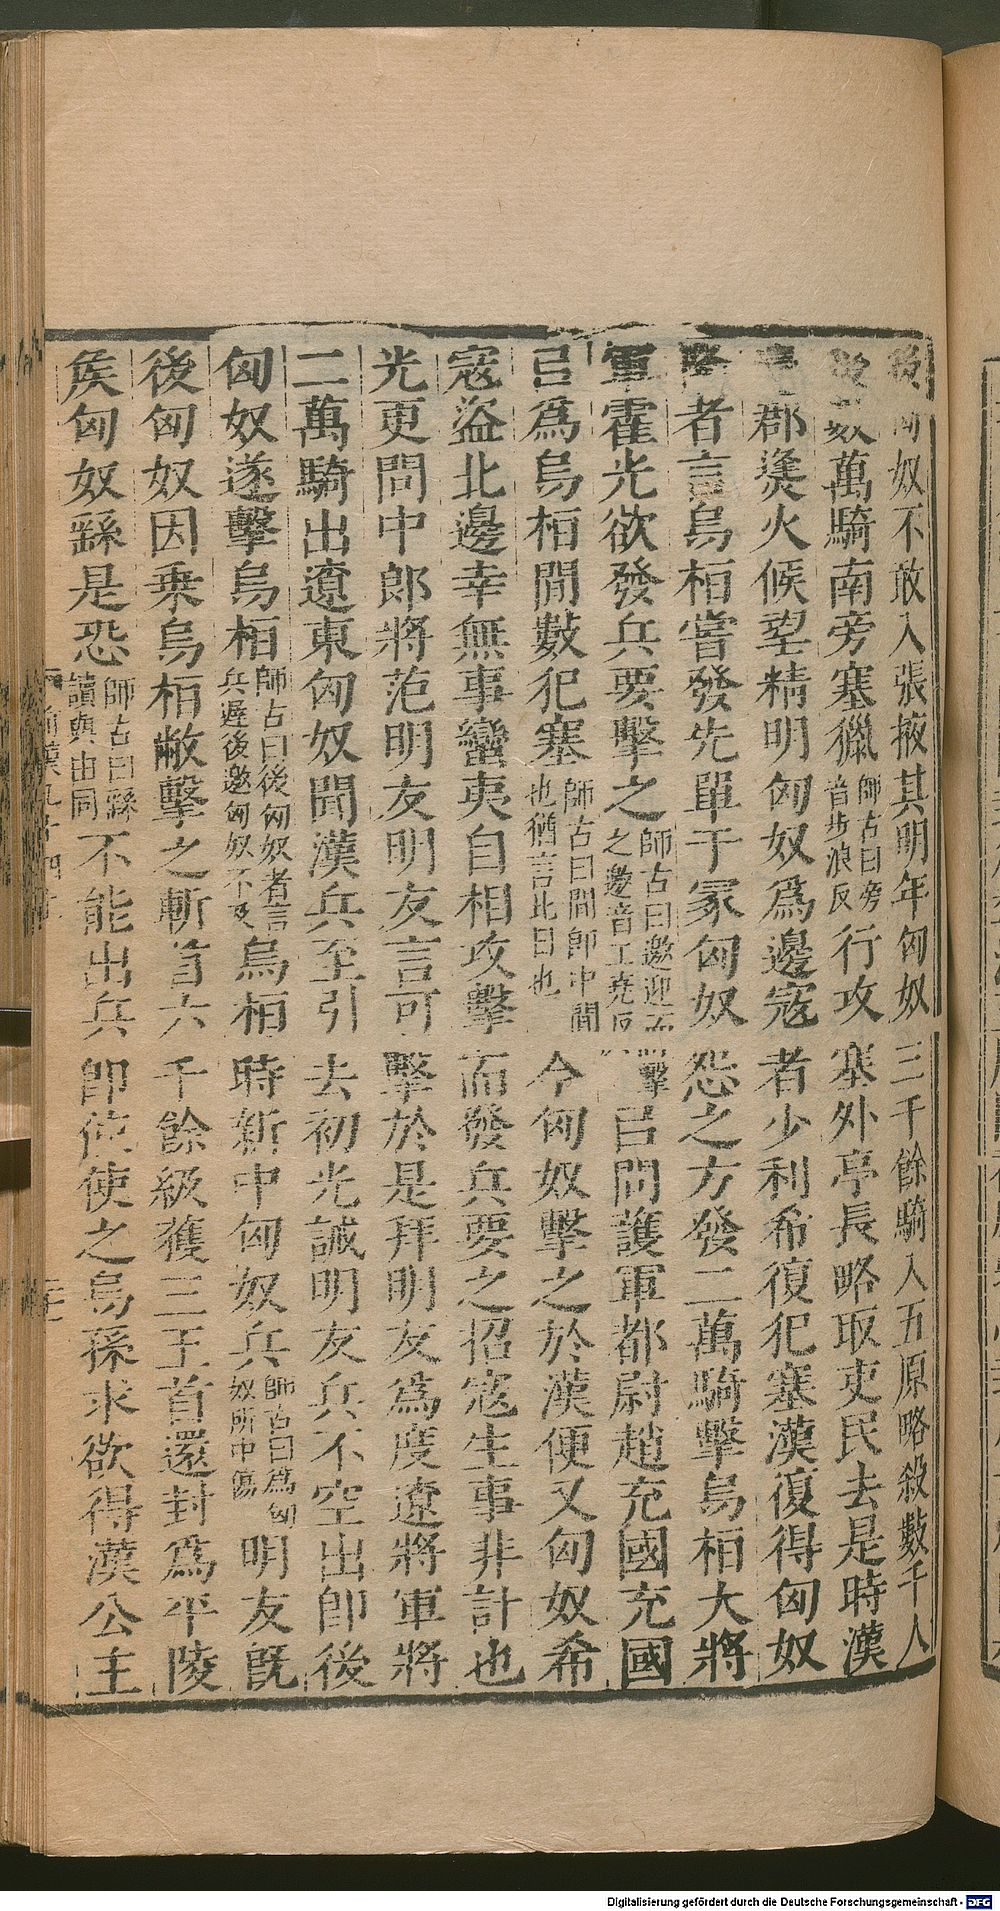 後匈奴不敢入張掖其明年匈奴三千餘騎入五原略殺數千人
後數萬騎南旁塞獵師古曰旁音步浪反行攻塞外亭長略取吏民去是時漢
邊郡㷭火候望精明匈奴爲邊寇者少利希復犯塞漢復得匈奴
降者言烏桓嘗發先單于冢匈奴怨之方發二萬騎擊烏桓大將
軍霍光欲發兵要擊之師古曰邀迎而擊之邀音工堯反㠯問護軍都尉趙充國充國
㠯爲烏桓間數犯塞師古曰間即中間也猶言比日也今匈奴擊之於漢便又匈奴希
寇盜北邊幸無事蠻夷自相攻擊而發兵要之招寇生事非計也
光更問中郎將范明友明友言可擊於是拜明友爲度遼將軍將
二萬騎出遼東匈奴聞漢兵至引去初光誡明友兵不空出即後
匈奴遂擊烏桓師古曰後匈奴者言兵遲後邀匈奴不及烏桓時新中匈奴兵師古曰爲匈奴所中傷明友旣
後匈奴因乘烏桓敝擊之斬首六千餘級獲三王首還封爲平陵
侯匈奴繇是恐師古曰繇讀與由同不能出兵即使使之烏孫求欲得漢公主
Digitalisierung gefördert durch die Deutsche Forschungsgemeinschaft - DFG